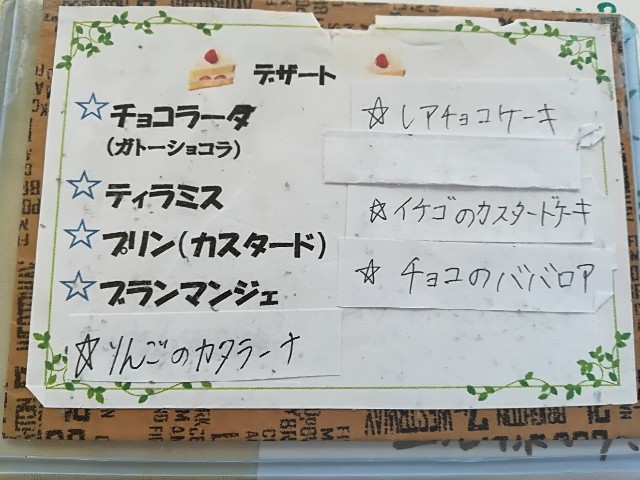 デザート
☆チョコラータ
(ガトーショコラ)
☆ティラミス
☆プリン(カスタード)
☆ブランマンジェ
☆りんごのカタラーナ
☆レアチョコケーキ
☆イチゴのカスタードケーキ
☆チョコのババロア